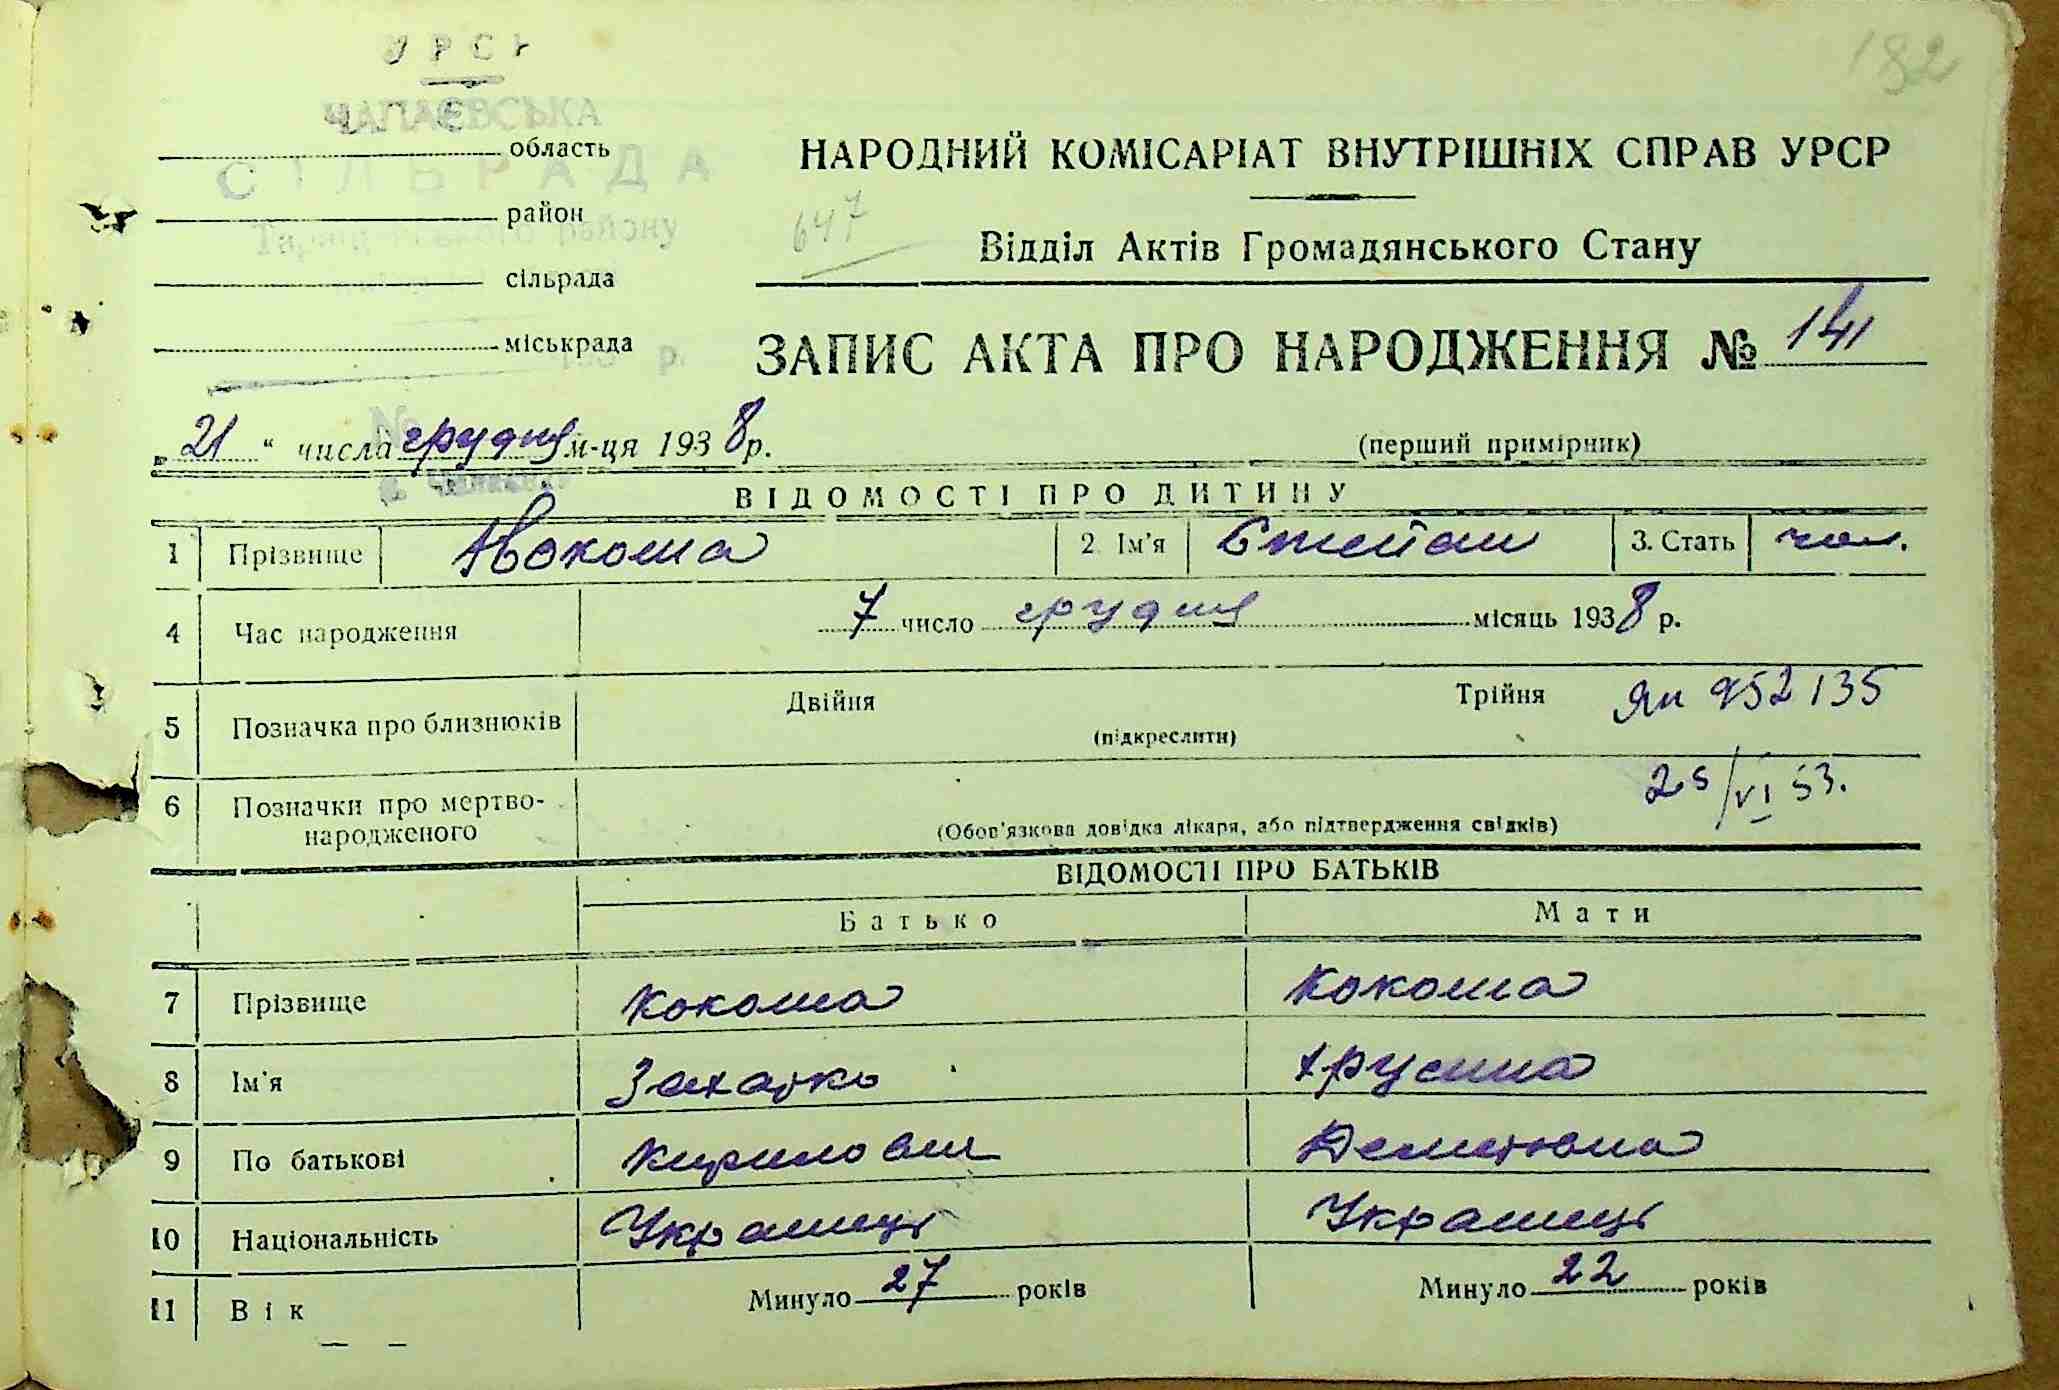 182
УРСР
ЧАПАЄВСЬКА
область
СІЛЬРАДА
район
району
сільрада
міськрада
193 р.
№
НАРОДНИЙ КОМІСАРІАТ ВНУТРІШНІХ СПРАВ УРСР
647
Відділ Актів Громадянського Стану
ЗАПИС АКТА ПРО НАРОДЖЕННЯ № 141
„21“ числа грудня м-ця 1938 р.
(перший примірник)
ВІДОМОСТІ ПРО ДИТИНУ
1 Прізвище Кокоша 2. Ім'я Степан 3. Стать чол.
4 Час народження 7 число грудня місяць 1938 р.
5 Позначка про близнюків Двійня Трійня
(підкреслити)
ЯП 952135
25/VI 53.
6 Позначки про мертво-
народженого
(Обов'язкова довідка лікаря, або підтвердження свідків)
ВІДОМОСТІ ПРО БАТЬКІВ
Батько Мати
7 Прізвище Кокоша Кокоша
8 Ім'я Захарко
9 По батькові Кирилович
10 Національність Українець Українець
11 Вік Минуло 27 років Минуло 22 років